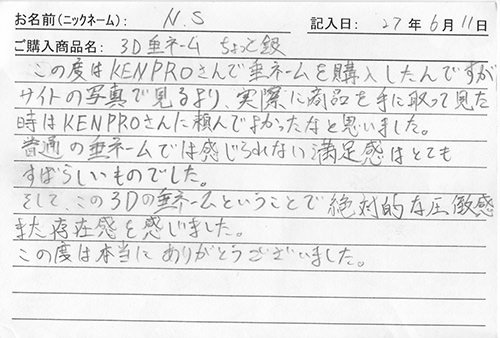 お名前(ニックネーム): N.S 記入日: 27年6月11日
ご購入商品名: 3D垂ネーム ちょっと銀
この度はKENPROさんで垂ネームを購入したんですが
サイトの写真で見るより、実際に商品を手に取って見た
時はKENPROさんに頼んでよかったなと思いました。
普通の垂ネームでは感じられない満足感はとても
すばらしいものでした。
そして、この3Dの垂ネームということで絶対的な圧倒感
また存在感を感じました。
この度は本当にありがとうございました。